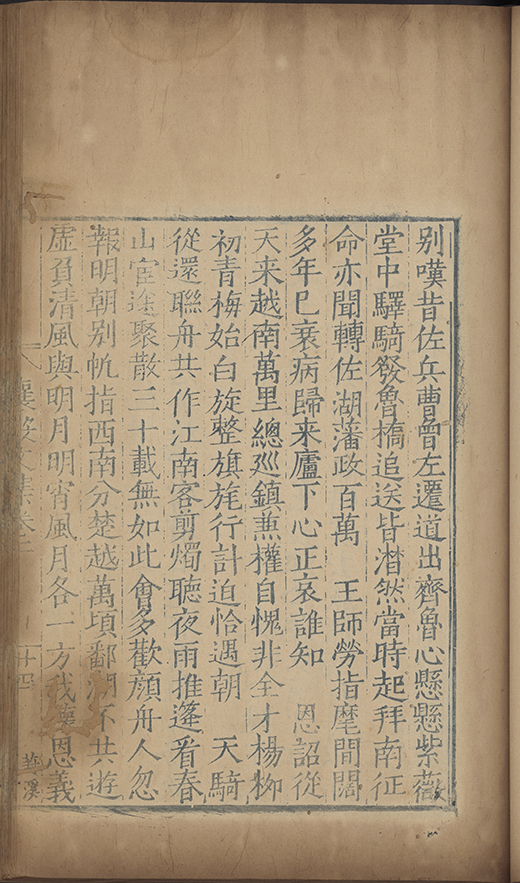 别嘆昔佐兵曹曾左遷道出齊魯心懸懸紫薇
堂中驛騎發魯橋追送皆潸然當時起拜南征
命亦聞轉佐湖藩政百萬　王師勞指麾間闊
多年已衰病歸来廬下心正哀誰知　恩詔從
天来越南萬里總巡鎮兼權自愧非全才楊栁
初青梅始白旋整旗旄行計迫恰遇朝　天騎
從還聯舟共作江南客剪燭聽夜雨推蓬看春
山宦途聚散三十載無如此會多歡顔舟人忽
報明朝别帆指西南分楚越萬頃鄱湖不共遊
虛負清風與明月明宵風月各一方我懷恩義
襄毅文集卷二
廿四